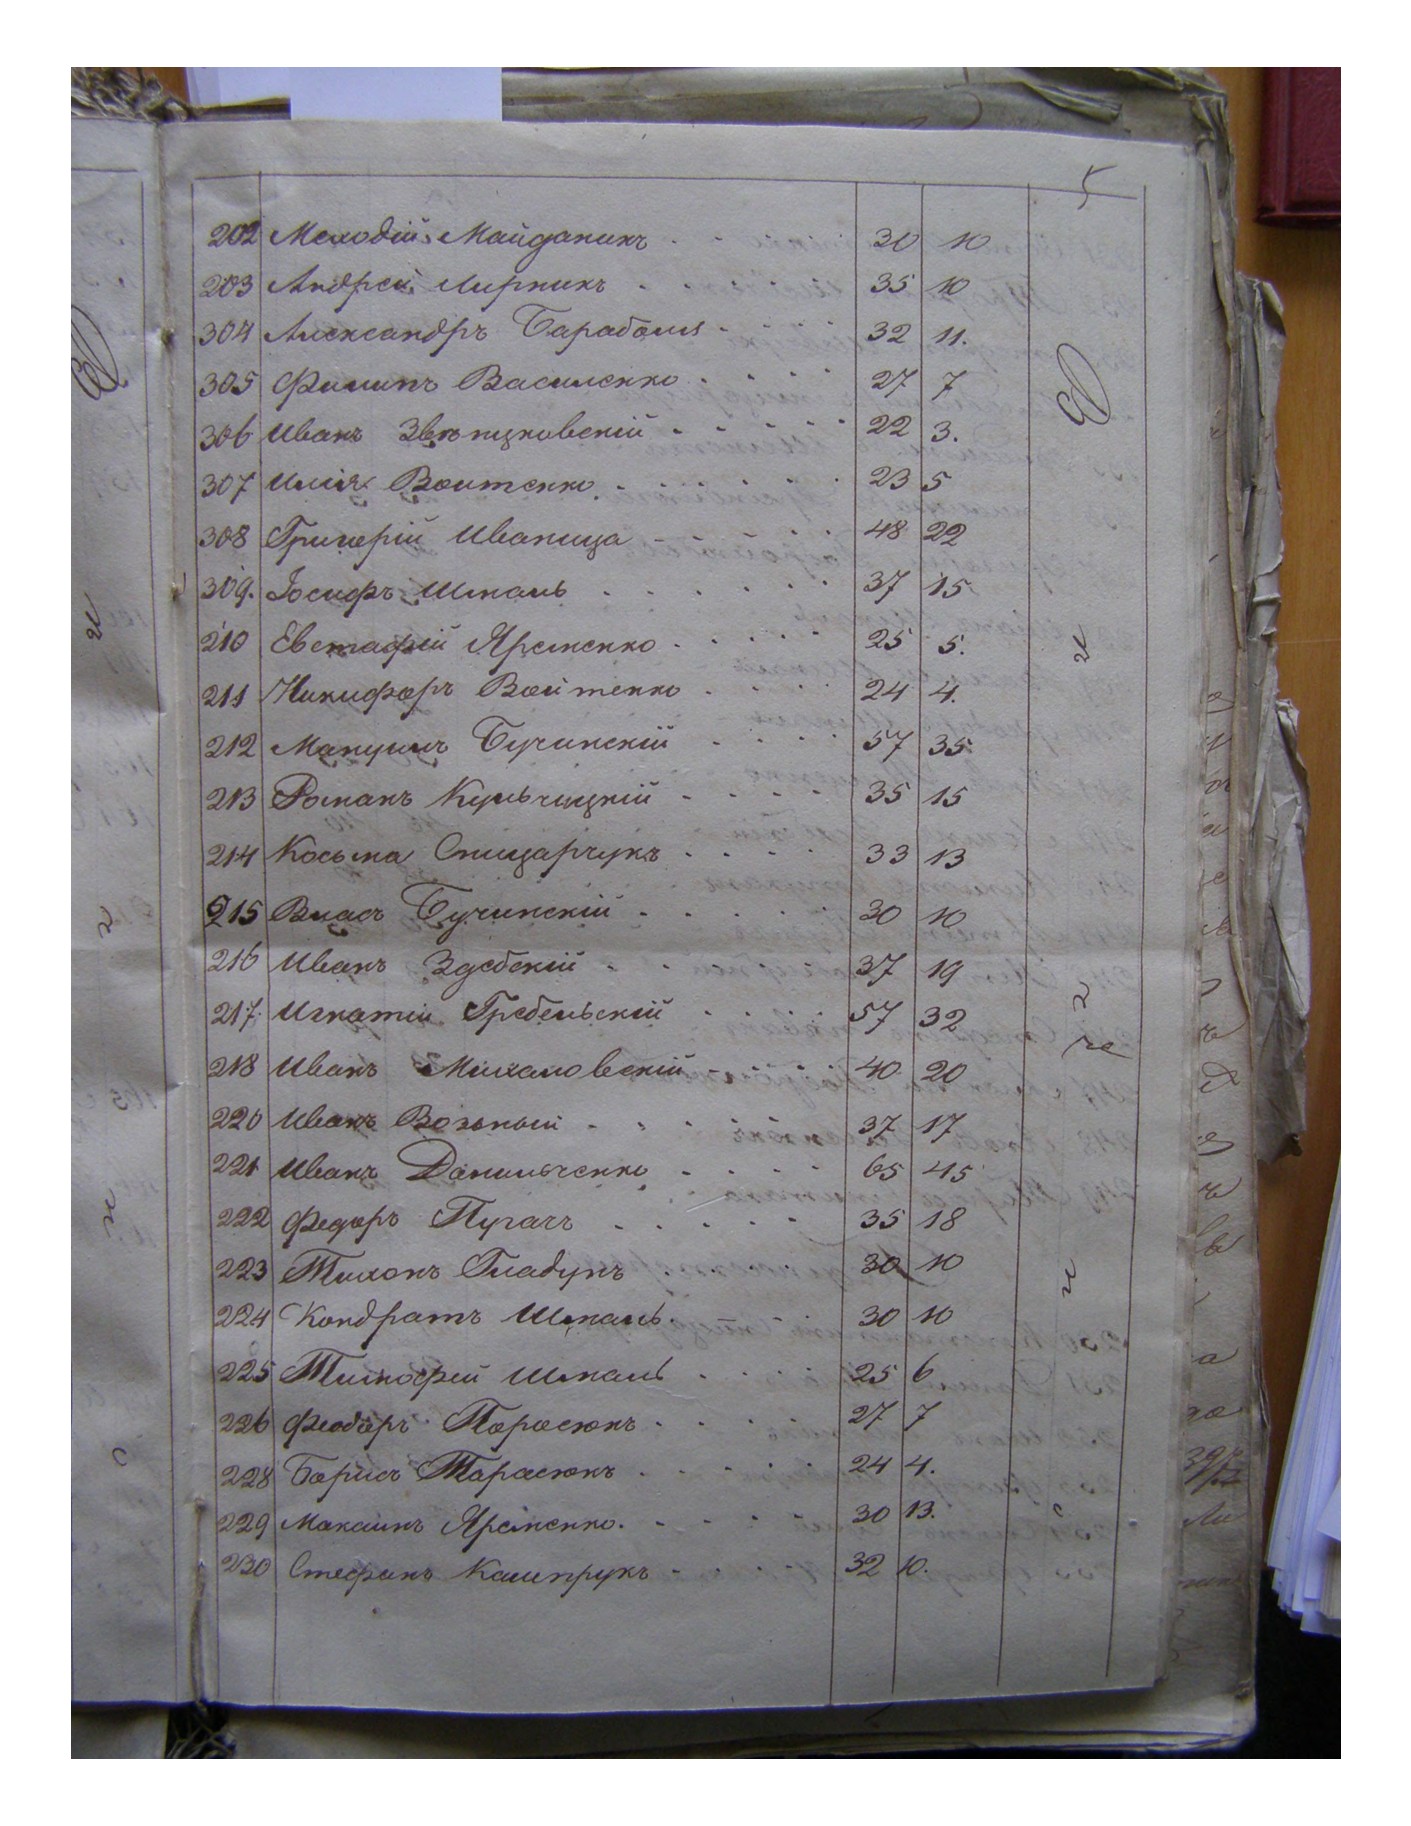 202 Меѳодій Майданикъ 30 10
203 Андрей Лирникъ 35 10
304 Александръ Барабаша 32 11.
305 Филипъ Василенко 27 7
306 Иванъ Звѣнцковскій 22 3.
307 Илія Воитенко 23 5
308 Григорій Иваница 48 22
309. Іосифъ Шмаль 37 15
210 Евстафій Яременко 25 5.
211 Никифоръ Войтенко 24 4.
212 Мануилъ Бучинскій 57 35
213 Романъ Кульчицкій 35 15
214 Косьма Спицарчукъ 33 13
215 Власъ Бучинскій 30 10
216 Иванъ Здебскій 37 19
217. Игнатій Гребельскій 57 32
218 Иванъ Михаловскій 40 20
220 Иванъ Возьный 37 17
221 Иванъ Данильченко 65 45
222 Федоръ Пугачъ 35 18
223 Тихонъ Гладунъ 30 10
224 Кондратъ Шмаль 30 10
225 Тимофей Шмаль 25 6
226 Феодоръ Тарасюкъ 27 7
228 Борисъ Тарасюкъ 24 4.
229 Максимъ Яременко. 30 13.
230 Стефанъ Кашпрукъ 32 10.